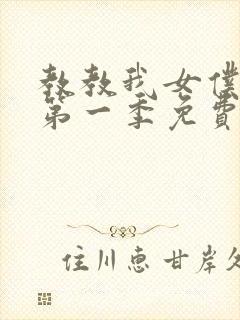 教教我女僕
第一季免費
住川惠甘岸久